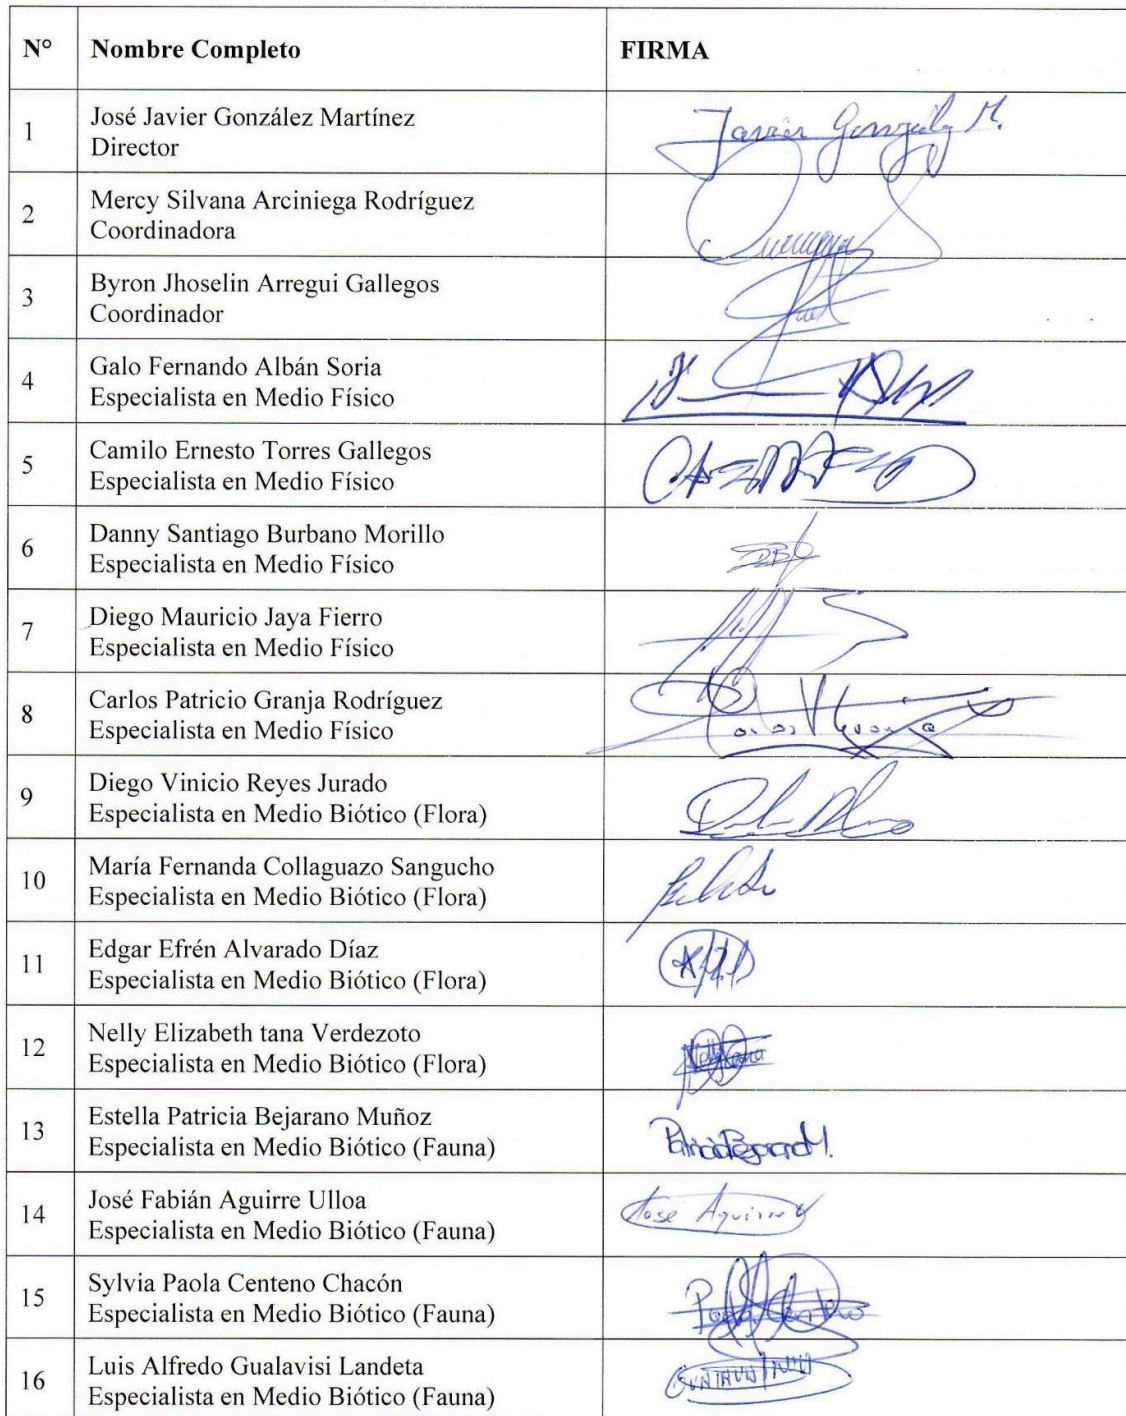 N° Nombre Completo FIRMA
1 José Javier González Martínez
Director
Javier González M.
2 Mercy Silvana Arciniega Rodríguez
Coordinadora
3 Byron Jhoselin Arregui Gallegos
Coordinador
4 Galo Fernando Albán Soria
Especialista en Medio Físico
5 Camilo Ernesto Torres Gallegos
Especialista en Medio Físico
6 Danny Santiago Burbano Morillo
Especialista en Medio Físico
7 Diego Mauricio Jaya Fierro
Especialista en Medio Físico
8 Carlos Patricio Granja Rodríguez
Especialista en Medio Físico
9 Diego Vinicio Reyes Jurado
Especialista en Medio Biótico (Flora)
10 María Fernanda Collaguazo Sangucho
Especialista en Medio Biótico (Flora)
11 Edgar Efrén Alvarado Díaz
Especialista en Medio Biótico (Flora)
12 Nelly Elizabeth tana Verdezoto
Especialista en Medio Biótico (Flora)
13 Estella Patricia Bejarano Muñoz
Especialista en Medio Biótico (Fauna)
Patricia Bejarano M.
14 José Fabián Aguirre Ulloa
Especialista en Medio Biótico (Fauna)
José Aguirre
15 Sylvia Paola Centeno Chacón
Especialista en Medio Biótico (Fauna)
Paola Centeno
16 Luis Alfredo Gualavisi Landeta
Especialista en Medio Biótico (Fauna)